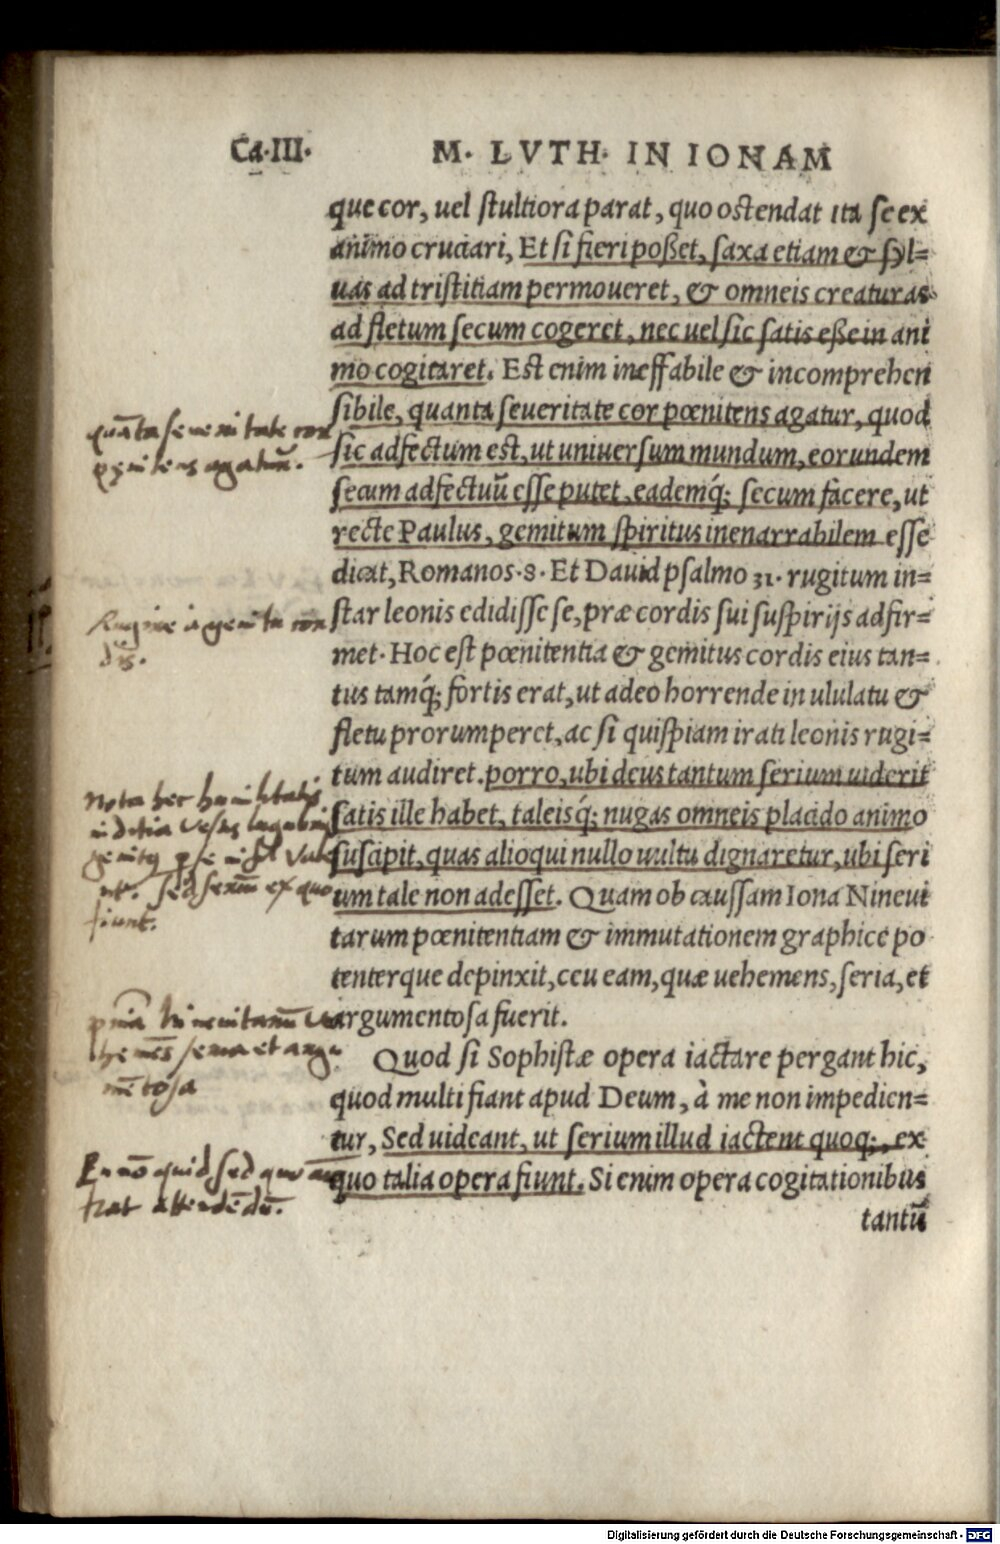 Ca·III·
M· LVTH· IN IONAM
que cor, uel ſtultiora parat, quo oſtendat ita ſe ex
animo cruciari, Et ſi fieri poßet, ſaxa etiam & ſyl=
uas ad triſtitiam permoueret, & omneis creaturas
ad fletum ſecum cogeret, nec uel ſic ſatis eße in ani
mo cogitaret. Eſt enim ineffabile & incomprehen
ſibile, quanta ſeueritate cor pœnitens agatur, quod
quāta ſeueritate cor
pęnitens agatur̄.
ſic adfectum eſt, ut uniuerſum mundum, eorundem
ſecum adfectuū eſſe putet, eademq́; ſecum facere, ut
recte Paulus, gemitum ſpiritus inenarrabilem eſſe
dicat, Romanos·8· Et Dauid pſalmo 31· rugitum in=
ſtar leonis edidiſſe ſe, præ cordis ſui ſuſpirijs adfir=
Rugire a gemitu cor
dis.
met· Hoc eſt pœnitentia & gemitus cordis eius tan=
tus tamq́; fortis erat, ut adeo horrende in ululatu &
fletu prorumperet, ac ſi quiſpiam irati leonis rugi=
tum audiret. porro, ubi deus tantum ſerium uiderit
ſatis ille habet, taleisq́; nugas omneis placido animo
ſuſcipit, quas alioqui nullo uultu dignaretur, ubi ſeri
um tale non adeſſet. Quam ob cauſſam Iona Nineui
Nota hec humilitatis
ſed ſeriū ex quo
fiunt.
tarum pœnitentiam & immutationem graphice po
tenterque depinxit, ceu eam, quæ uehemens, ſeria, et
argumentoſa fuerit.
hemēs ſeria et argu
mētoſa
Quod ſi Sophiſtæ opera iactare pergant hic,
quod multi fiant apud Deum, à me non impedien=
tur, Sed uideant, ut ſerium illud iactent quoq;, ex
quo talia opera fiunt. Si enim opera cogitationibus
nō quid ſed quo
attendēdū.
tantū
Digitalisierung gefördert durch die Deutsche Forschungsgemeinschaft - DFG